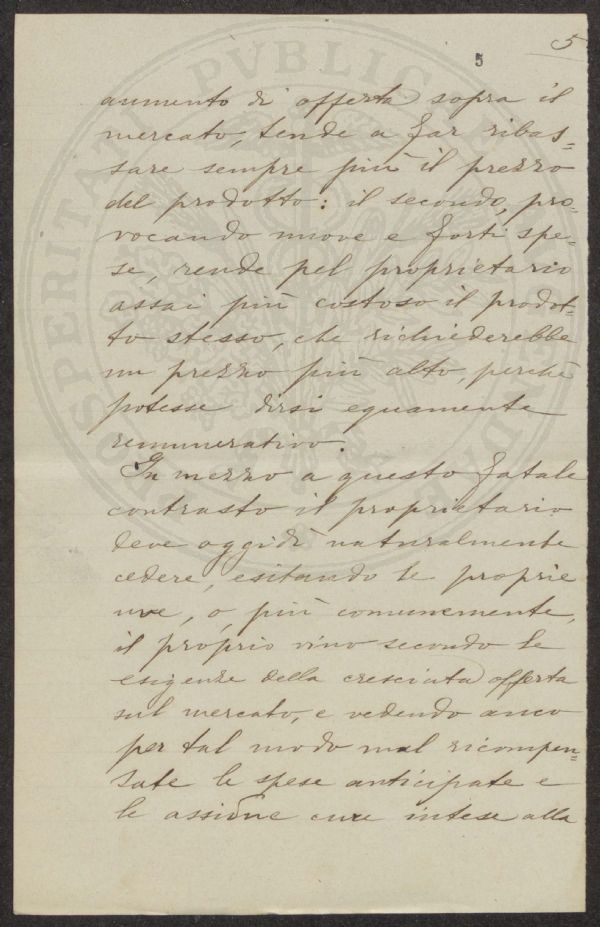 5
5
aumento di offerta sopra il
mercato, tende a far ribas=
sare sempre più il prezzo
del prodotto: il secondo, pro=
vocando nuove e forti spe=
se, rende pel proprietario
assai più costoso il prodot=
to stesso, che richiederebbe
un prezzo più alto, perchè
potesse dirsi equamente
remunerativo.
In mezzo a questo fatale
contrasto il proprietario
deve oggidì naturalmente
cedere, esitando le proprie
uve, o, più comunemente,
il proprio vino secondo le
esigenze della cresciuta offerta
sul mercato, e vedendo anco
per tal modo mal ricompen=
sate le spese anticipate e
le assidue cure intese alla
PVBLICAE
PROSPERITATI